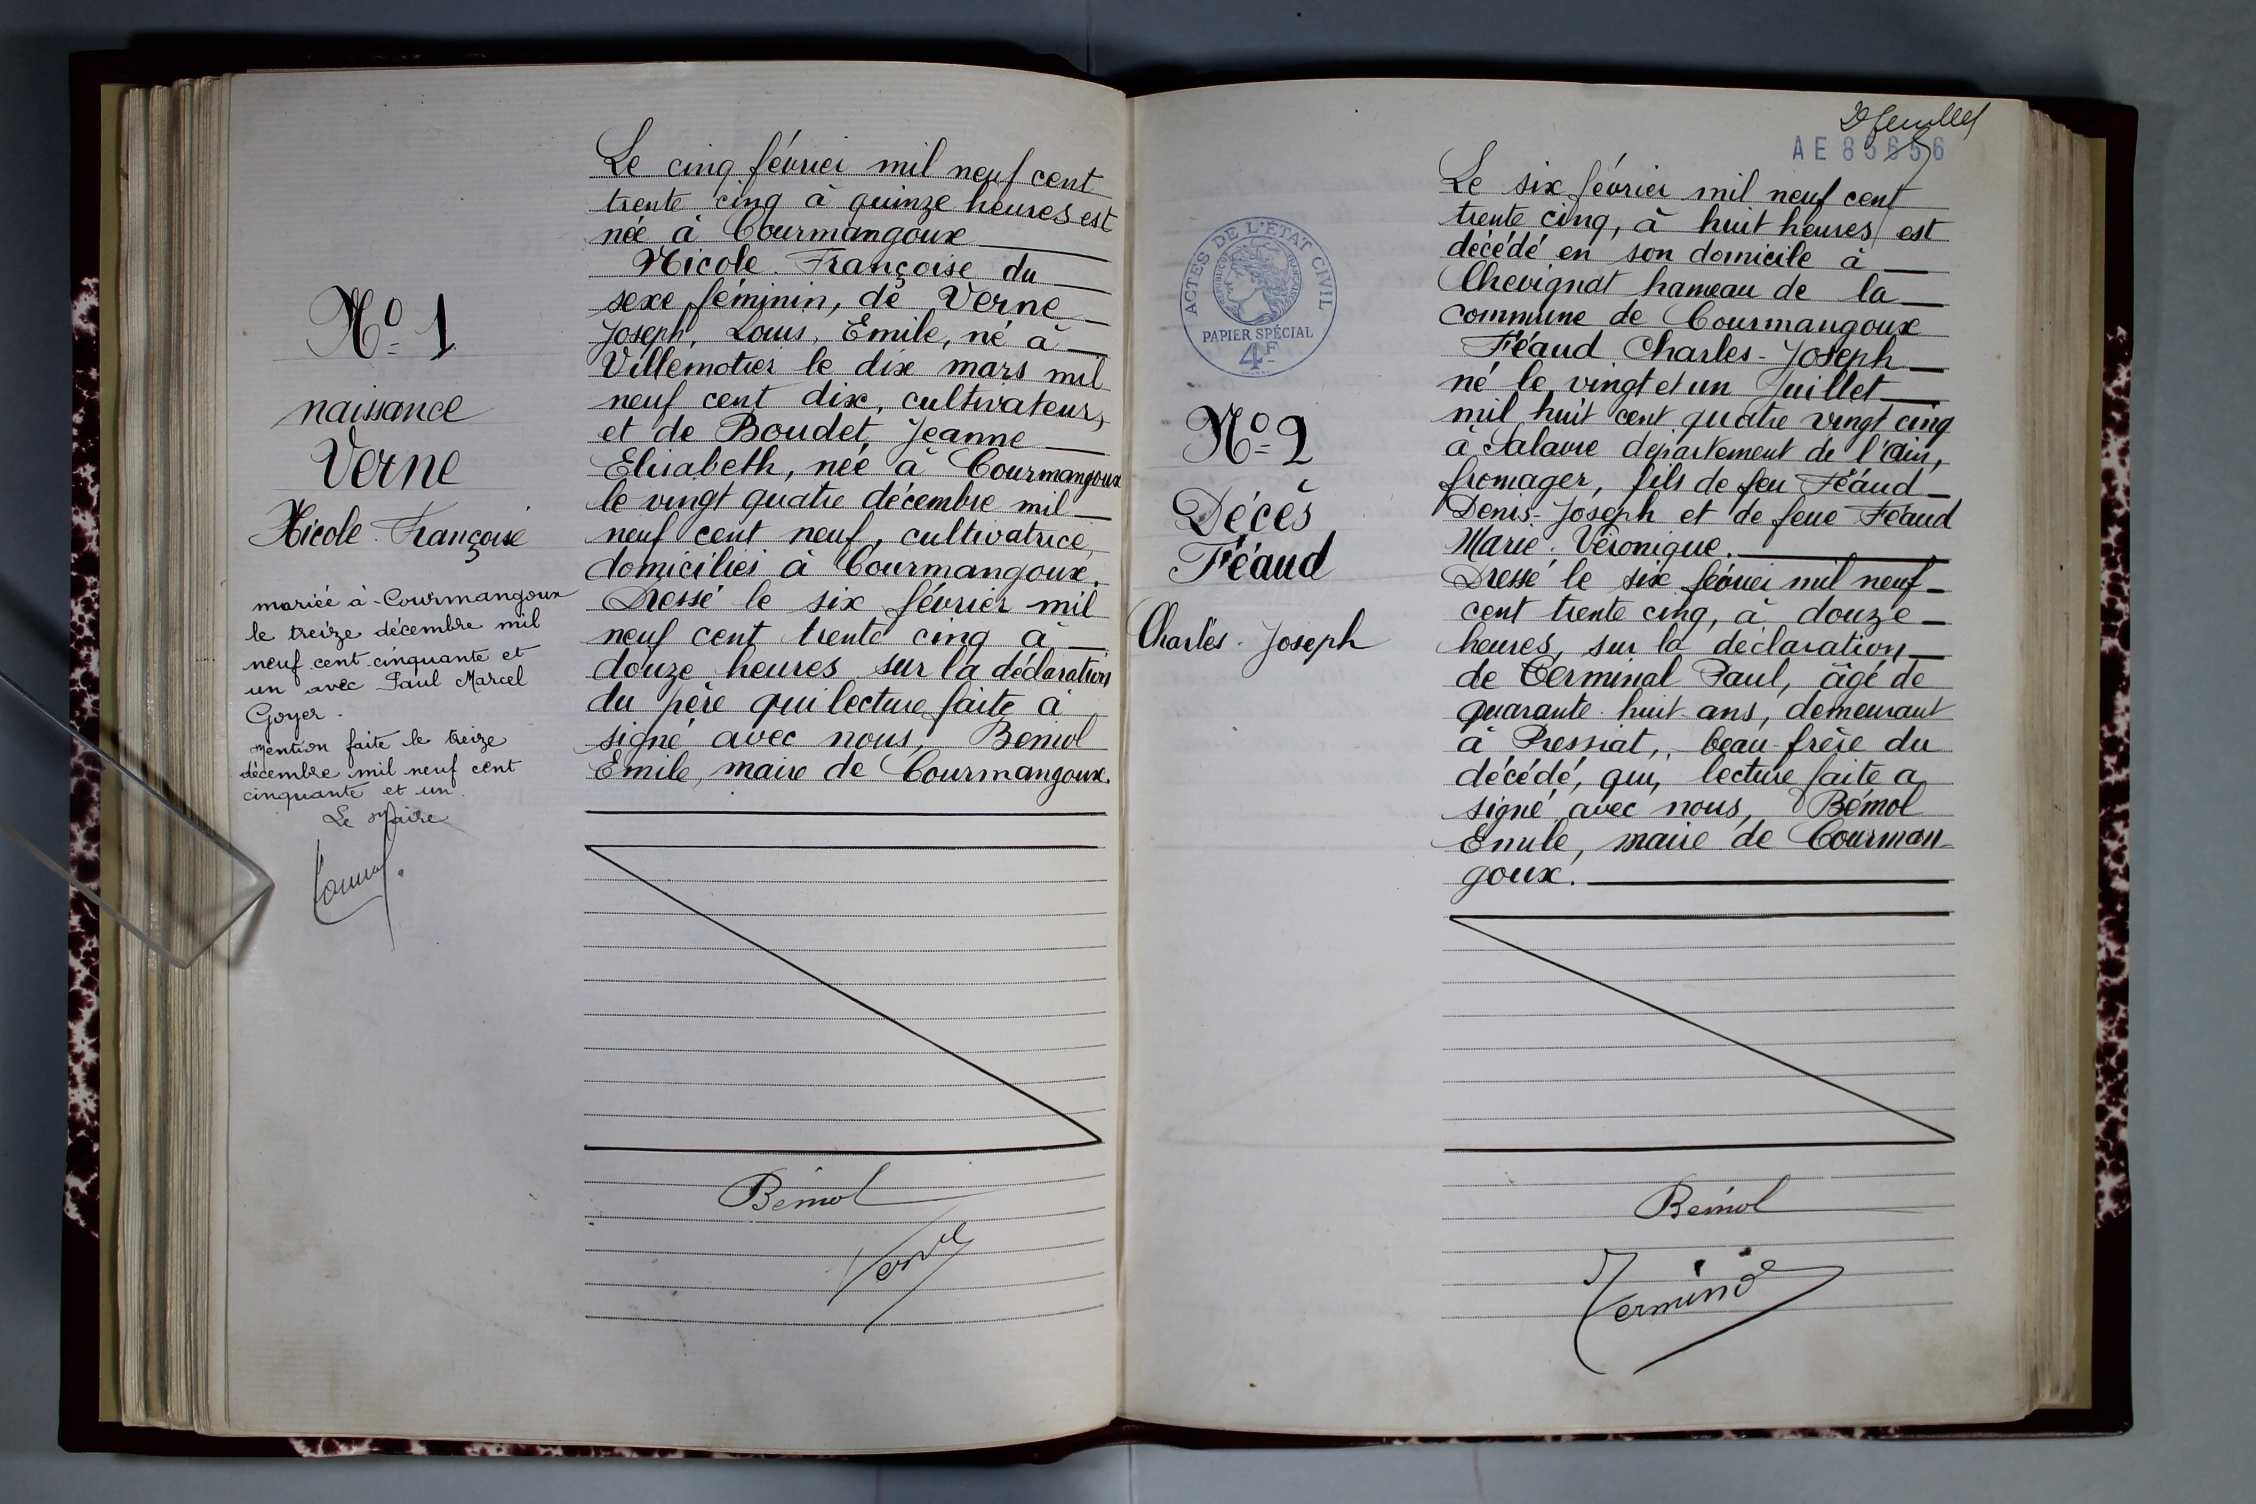 Nº 1
naissance
Verne
Nicole Françoise
mariée à Courmangoux
le treize décembre mil
neuf cent cinquante et
un avec Paul Marcel
Goyer.
mention faite le treize
décembre mil neuf cent
cinquante et un.
Le Maire
Le cinq février mil neuf cent
trente cinq à quinze heures est
née à Courmangoux
Nicole Françoise du
sexe féminin, de Verne
Joseph, Louis, Emile, né à
Villemotier le dix mars mil
neuf cent dix, cultivateur,
et de Boudet, Jeanne
Elisabeth, née à Courmangoux
le vingt quatre décembre mil
neuf cent neuf, cultivatrice,
domiciliés à Courmangoux.
Dressé le six février mil
neuf cent trente cinq à
douze heures sur la déclaration
du père qui lecture faite à
signé avec nous, Bémol
Emile, maire de Courmangoux.
Bémol
Verne
2e feuillet
AE 85656
ACTES DE L'ÉTAT CIVIL
PAPIER SPÉCIAL
4F
Nº 2
Décès
Féaud
Charles-Joseph
Le six février mil neuf cent
trente cinq, à huit heures est
décédé en son domicile à
Chevignat hameau de la
commune de Courmangoux
Féaud Charles-Joseph
né le vingt et un Juillet
mil huit cent quatre vingt cinq
à Salavre département de l'ain,
fromager, fils de feu Féaud
Denis-Joseph et de feue Féaud
Marie Véronique.
Dressé le six février mil neuf
cent trente cinq, à douze
heures, sur la déclaration
de Terminal Paul, âgé de
quarante-huit ans, demeurant
à Pressiat, beau-frère du
décédé, qui, lecture faite a
signé avec nous, Bémol
Emile, maire de Courman
goux.
Bémol